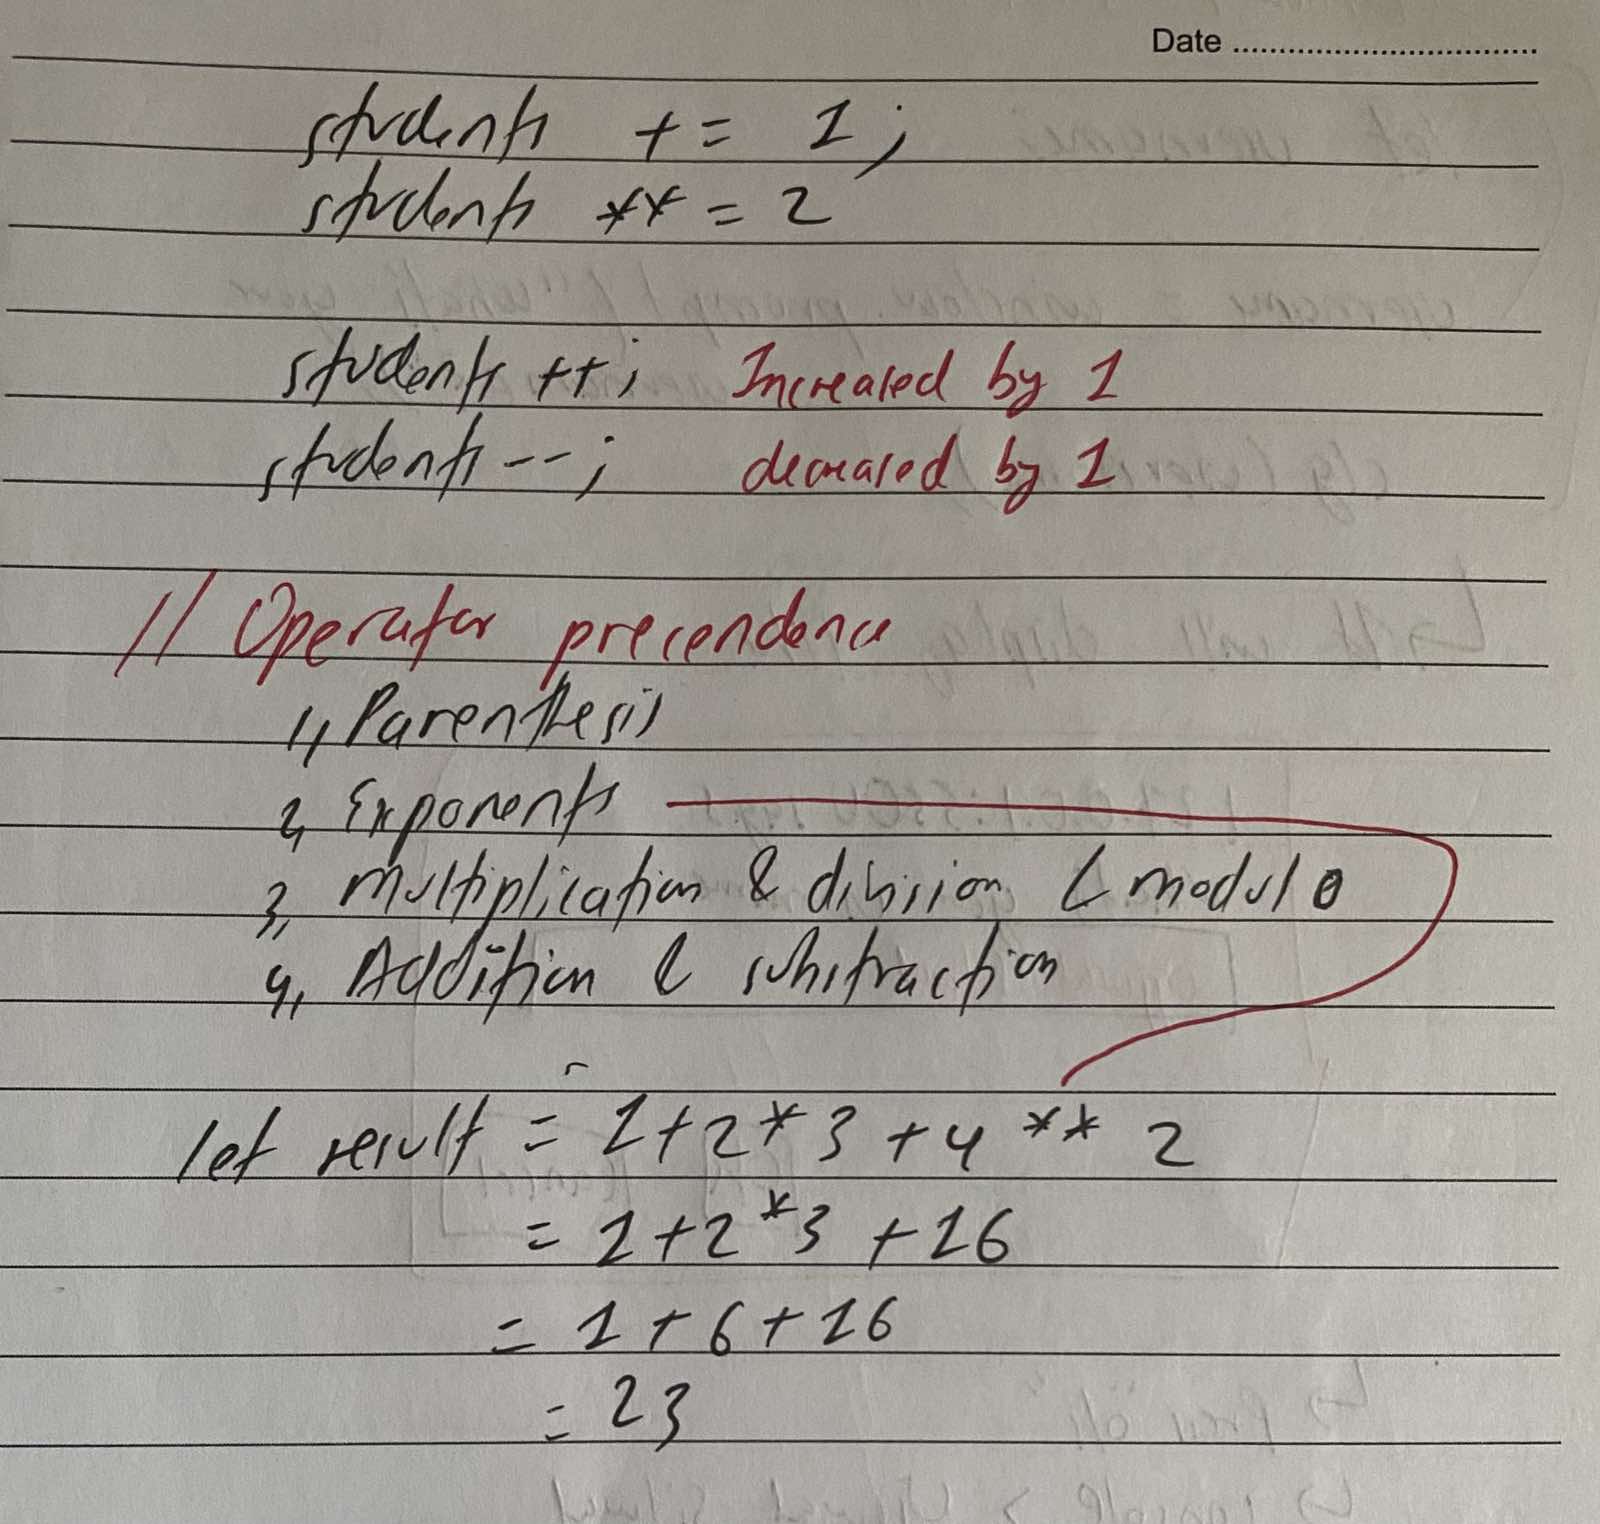 Date
students += 1;
students **= 2
students ++; Increased by 1
students --; decreased by 1
// Operator precendence
1, Parenthesis
2, Exponents
3, multiplication & division & modulo
4, Addition & substraction
let result = 1+2*3+4 ** 2
= 1+2*3 +16
= 1+6+16
= 23